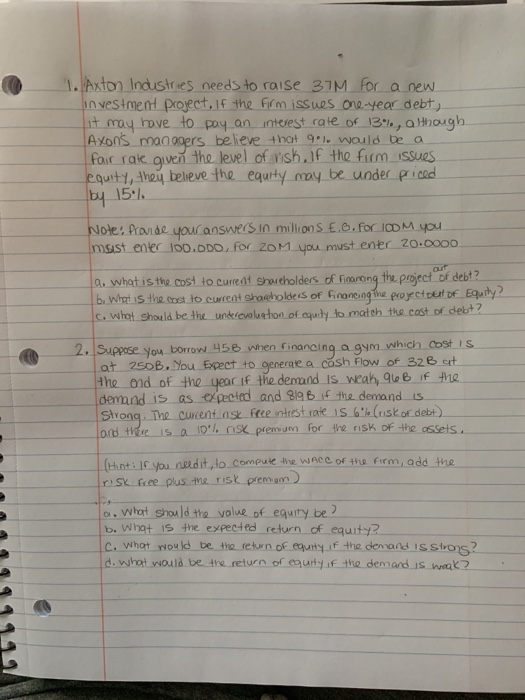 1. Axton Industries needs to raise 37M for a new
investment project. If the firm issues one-year debt,
it may have to pay an interest rate of 13%, although
Axon's managers believe that 9% would be a
fair rate given the level of risk. If the firm issues
equity, they believe the equity may be under priced
by 15%.
Note: Provide your answers in millions E.G. for 100M you
must enter 100.000, for 20M you must enter 20.0000
a. what is the cost to current shareholders of financing the project out of debt?
b. What is the cost to current shareholders of financing the project out of Equity?
c. What should be the undervaluation of equity to match the cost of debt?
2. Suppose you borrow 45B when financing a gym which cost is
at 250B. You Expect to generate a cash flow of 32B at
the end of the year if the demand is weak, 96B if the
demand is as expected and 819B if the demand is
Strong. The current risk free intrest rate is 6% (risk of debt)
and there is a 10% risk premium for the risk of the assets.
(Hint: If you need it, to compute the WACC of the firm, add the
risk free plus the risk premium)
a. What should the value of equity be?
b. What is the expected return of equity?
C. What would be the return of equity if the demand is strong?
d. what would be the return of equity if the demand is weak?